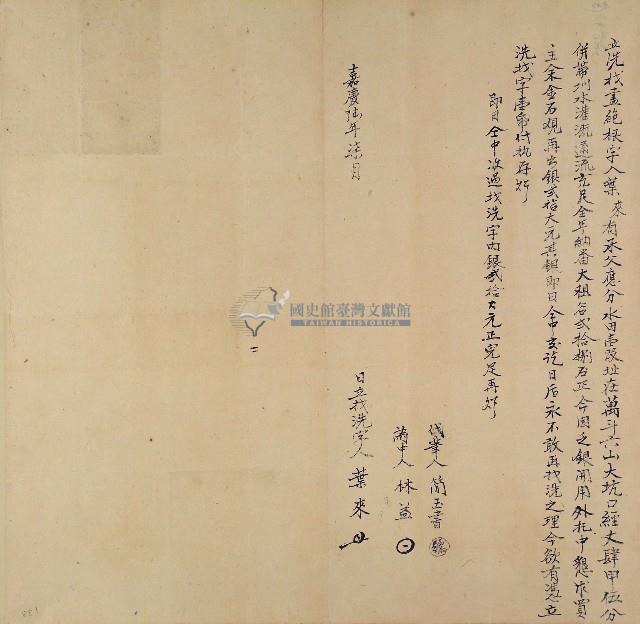 立洗找盡絕根字人葉來有承父應分水田壹段址在萬斗六山大坑口經丈肆甲伍分
併帶圳水灌溉通流充足全年納番大租谷貳拾捌石正今因乏銀開用外托中懇求買
主余金石觀再出銀貳拾大元其銀即日仝中交訖日后永不敢再找洗之理今欲有憑立
洗找字壹紙付執存炤
即日仝中收過找洗字內銀貳拾大元正完足再炤
代筆人 簡玉書
為中人 林益
嘉慶陆年柒月 日立找洗字人 葉來
國史館臺灣文獻館
TAIWAN HISTORICA